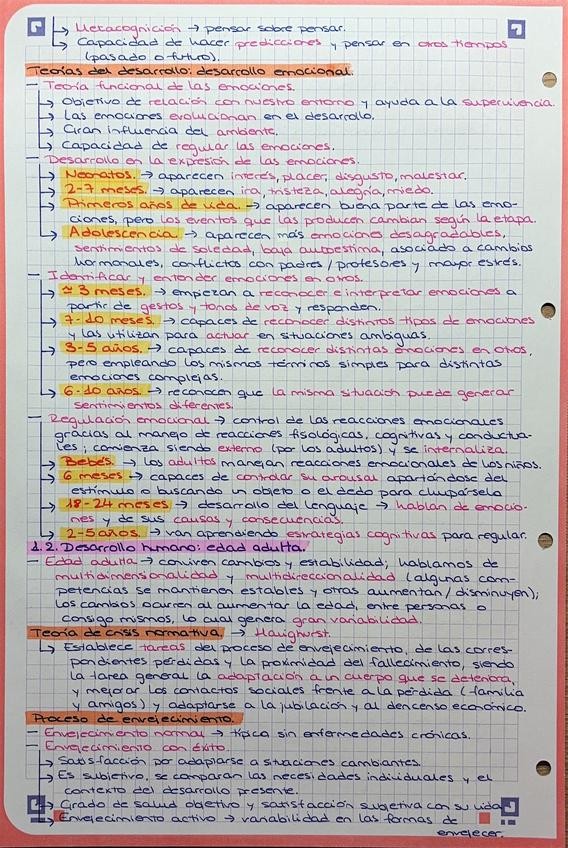 ↳ Metacognición → pensar sobre pensar.
↳ Capacidad de hacer predicciones y pensar en otros tiempos
(pasado o futuro).
Teorías del desarrollo: desarrollo emocional.
— Teoría funcional de las emociones.
↳ Objetivo de relación con nuestro entorno y ayuda a la supervivencia.
↳ Las emociones evolucionan en el desarrollo.
↳ Gran influencia del ambiente.
↳ Capacidad de regular las emociones.
— Desarrollo en la expresión de las emociones.
↳ Neonatos. → aparecen interés, placer, disgusto, malestar.
↳ 2-7 meses → aparecen ira, tristeza, alegría, miedo.
↳ Primeros años de vida. → aparecen buena parte de las emo-
ciones, pero los eventos que las producen cambian según la etapa.
↳ Adolescencia. → aparecen más emociones desagradables,
sentimientos de soledad, baja autoestima, asociado a cambios
hormonales, conflictos con padres/profesores y mayor estrés.
— Identificar y entender emociones en otros.
↳ ≃ 3 meses. → empiezan a reconocer e interpretar emociones a
partir de gestos y tonos de voz y responden.
↳ 7-10 meses. → capaces de reconocer distintos tipos de emociones
y las utilizan para actuar en situaciones ambiguas.
↳ 3-5 años. → capaces de reconocer distintas emociones en otros,
pero empleando los mismos términos simples para distintas
emociones complejas.
↳ 6-10 años. → reconocen que la misma situación puede generar
sentimientos diferentes.
— Regulación emocional → control de las reacciones emocionales
gracias al manejo de reacciones fisiológicas, cognitivas y conductua-
les; comienza siendo externo (por los adultos) y se internaliza.
↳ Bebés. → los adultos manejan reacciones emocionales de los niños.
↳ 6 meses → capaces de controlar su arousal apartándose del
estímulo o buscando un objeto o el dedo para chupárselo
↳ 18-24 meses → desarrollo del lenguaje → hablan de emocio-
nes y de sus causas y consecuencias.
↳ 2-5 años. → van aprendiendo estrategias cognitivas para regular.
1.2. Desarrollo humano: edad adulta.
— Edad adulta → conviven cambios y estabilidad; hablamos de
multidimensionalidad y multidireccionalidad (algunas com-
petencias se mantienen estables y otras aumentan/disminuyen);
los cambios ocurren al aumentar la edad, entre personas o
consigo mismos, lo cual genera gran variabilidad.
Teoría de crisis normativa. → Havighurst.
↳ Establece tareas del proceso de envejecimiento, de las corres-
pondientes pérdidas y la proximidad del fallecimiento, siendo
la tarea general la adaptación a un cuerpo que se deteriora,
y mejorar los contactos sociales frente a la pérdida (familia
y amigos) y adaptarse a la jubilación y al descenso económico.
Proceso de envejecimiento.
— Envejecimiento normal → típica sin enfermedades crónicas.
— Envejecimiento con éxito.
↳ Satisfacción por adaptarse a situaciones cambiantes.
↳ Es subjetivo, se comparan las necesidades individuales y el
contexto del desarrollo presente.
↳ Grado de salud objetivo y satisfacción subjetiva con su vida
↳ Envejecimiento activo → variabilidad en las formas de
envejecer.